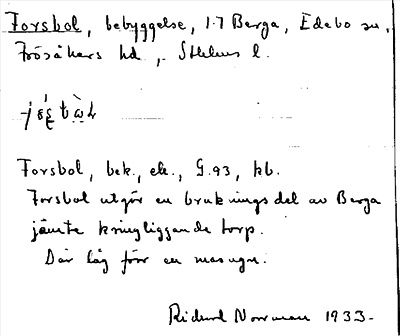 Forsbol, bebyggelse, 1.7 Berga, Edebo sn,
Frösåkers hd, Sthlms l.
Forsbol, bek., ek., G.93, kb.
Forsbol utgör en brukningsdel av Berga
jämte kringliggande torp.
Där låg förr en masugn.
Rickard Norrman 1933-